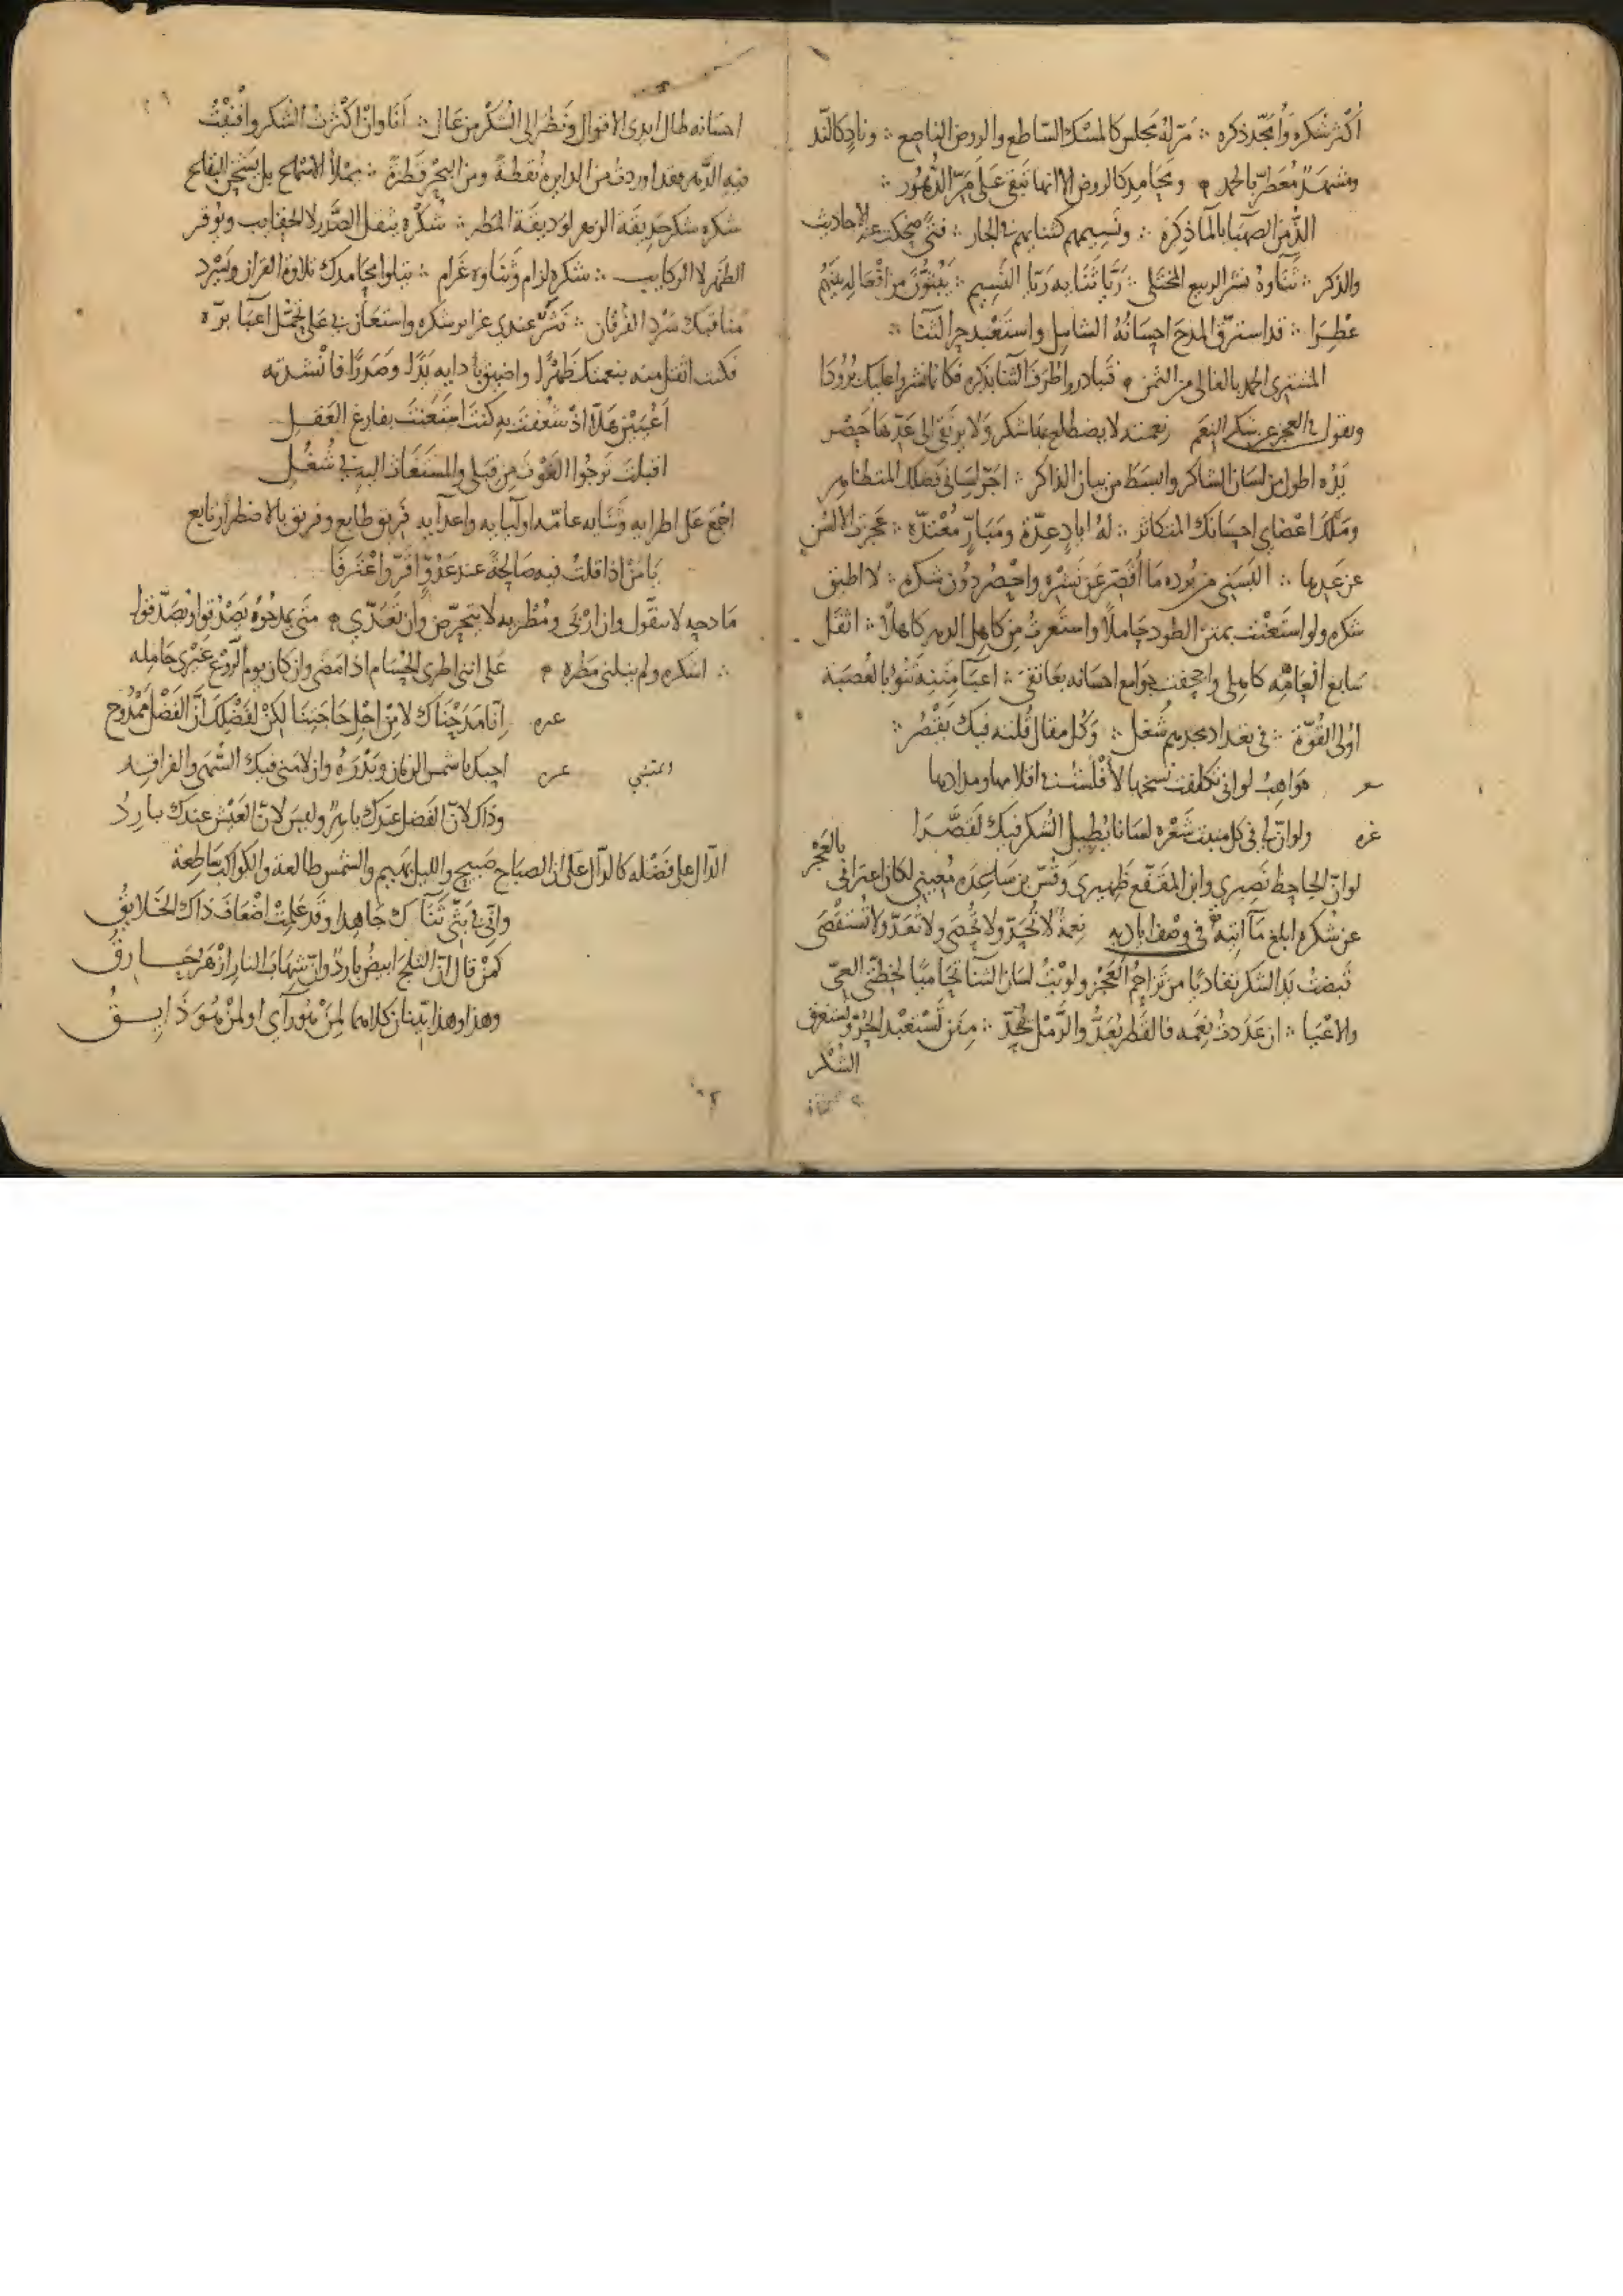 أكثر شكره وأمجّد ذكره ∴ مرّ له مجلس كالمسك الساطع والروض الناصع ∴ وناد كالند
ومشهد معطر بالحمد م ومحامد كالروض الا انها تبقى على مرّ الدهور ∴
الذ من الصهبا بالما ذكره ∴ ونسيمهم ∴ فتى ضحكت عنه الاحاديث
والذكر ∴ ثناوه نشر الربيع ∴ ريا ثنا به ريا النسيم ∴
عطرا ∴ قد استرق المدح احسانه الشامل واستعبد حر الثنا ∴
المشترى الحمد بالغالى من الثمن م فتبادروا طرف الثنا بذكره فكانما نشروا عليك برودا
ويقول في العجز عن شكر النعم نعمته لا يضطلع بها شكر ولا يرتقى الى عدّها حصر
برّه اطول من لسان الشاكر وابسط من بيان الذاكر ∴ اجرّ لسانى فضلك المتظاهر
وملك اعضاى احسانك المتكاثر ∴ له اياد عدّة ومبارّ معتدّة ∴ عجزت الالسن
عن عدها ∴ البسنى من بروده ما أقصر عن نشره واحصر دون شكره ∴ لا اطيق
شكره ولو استعنت بمتن الطود حاملا واستعرت من كاهل الدهر كاهلا ∴ اثقل
سابغ انعامه كاملى واجحفت جوامع احسانه بعاتقى ∴ اعبا مننه تنوء بالعصبة
اولى القوة ∴ في بغداد مجدهم شغل ∴ وكل مقال قلته فيك يقصر ∴
مواهب لو انى تكلفت نسخها لأفلست في اقلامها ومدادها
غره ولو انّ لي في كل منبت شعره لسانا يطيل الشكر فيك لقصّرا
لو انّ الجاحظ نصيري وابن المقفع ظهيري وقسّ بن ساعده معيني لكان اعترافى بالعجز
عن شكره ابلغ ما اتيه في وصف اياديه نعمة لا تحدّ ولا تحصى ولا تعدّ ولا تستقصى
قبضت يد الشكر تفاديا من تزاحم العجز ولويت لسان الثنا تحاميا لخطتى العيّ
والاعيا ∴ ان عددت نعمه فالقطر يعدّ والرمل يحدّ ∴ منن تستعبد الحرّ وتستغرق
الشكر
احسانه طال ايدى الاقوال ونظر الى الشكر من عال ∴ أنا وان اكثرت الشكر وافنيت
فيه الدهر فقد اوردت من الدايرة نقطة ومن البحر قطرة ∴ يملأ الاسماع
شكره شكر حديقة الزهر لوديقة المطر ∴ شكره يثقل الصدر لا الحقايب ويوقر
الظهر لا الركايب ∴ شكره لزام وثناوه غرام ∴ يتلوا محامدك تلاوة القران ويسرد
مناقبك سرد الفرقان ∴ عندي غرائر شكره واستعان بي على تحمّل اعبآ برّه
فكنت اثقل منه بنعمتك ظهرا واضيق بأدايه يدا وصدرا فانشدته
اقبلت ترجوا الغوث من قبلى والمستغاث اليه في شغل
اجمع على اطرايه وثنايه عامّة اوليايه واعدآيه فريق طايع وفريق بالاضطرار تابع
يا من اذا قلت فيه صالحة عند عدوّ اقرّ واعترفا
مادحه لا يتقول وان اربى ومطريه لا يتحرّض وان تعدّي م متى يمدحوه يصدقوا ويصدّقوا
∴ اشكره ولم ينلنى مطره م على اننى اطرى الحسام اذا مضى وان كان يوم الروع غيرى حامله
غره انّا مدحناك لا من اجل حاجتنا لكن لفضلك انّ الفضل ممدوح
المتنبي غره احبك يا شمس الزمان وبدره وان لامنى فيك السهى والفراقد
وذاك لانّ الفضل عندك باهر وليس لانّ العيش عندك بارد
الدّال على فضله كالدّال على ان الصباح صبيح والليل بهيم والشمس طالعة والكواكب ساطعة
وانّي في بثّي ثناك جاهدا وقد علمت اضعاف ذاك الخلايق
كمن قال انّ الثلج ابيض بارد وانّ شهاب النار ازهر حارق
وهذا وهذا بيّنان كلاهما لمن هو رآي او لمن هو ذايق